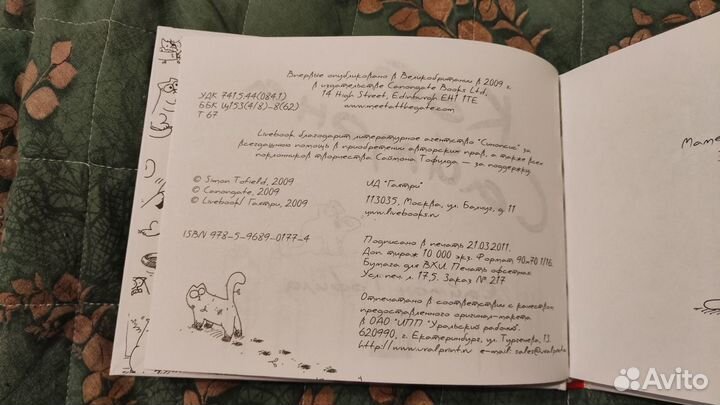 Впервые опубликовано в Великобритании в 2009 г.
в издательстве Canongate Books Ltd,
14 High Street, Edinburgh EH1 1TE
www.meetatthegate.com
УДК 741.5.44(084.1)
ББК Щ153(4/8)-8(62)
Т 67
Livebook благодарит литературное агентство "Синопсис" за
всегдашнюю помощь в приобретении авторских прав, а также всех
поклонников творчества Саймона Тофилда — за поддержку.
© Simon Tofield, 2009
© Canongate, 2009
© Livebook/ Гаятри, 2009
ИД "Гаятри"
113035, Москва, ул. Балчуг, д. 11
www.livebooks.ru
ISBN 978-5-9689-0177-4
Подписано в печать 21.03.2011.
Доп. тираж 10 000 экз. Формат 90х70 1/16.
Бумага для ВХИ. Печать офсетная.
Усл. печ. л. 17,5. Заказ № 217
Отпечатано в соответствии с качеством
предоставленного оригинал-макета
в ОАО "ИПП "Уральский рабочий".
620990, г. Екатеринбург, ул. Тургенева, 13.
http://www.uralprint.ru e-mail: sales@uralprint
Маме
Avito